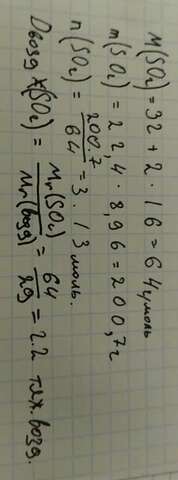 M(SO₂) = 32 + 2 · 16 = 64 г/моль
m(SO₂) = 22,4 · 8,96 = 200,7 г
n(SO₂) = 200.7/64 = 3.13 моль.
Dвозд x(SO₂) = Mr(SO₂)/Mr(возд) = 64/29 = 2.2 тяж. возд.